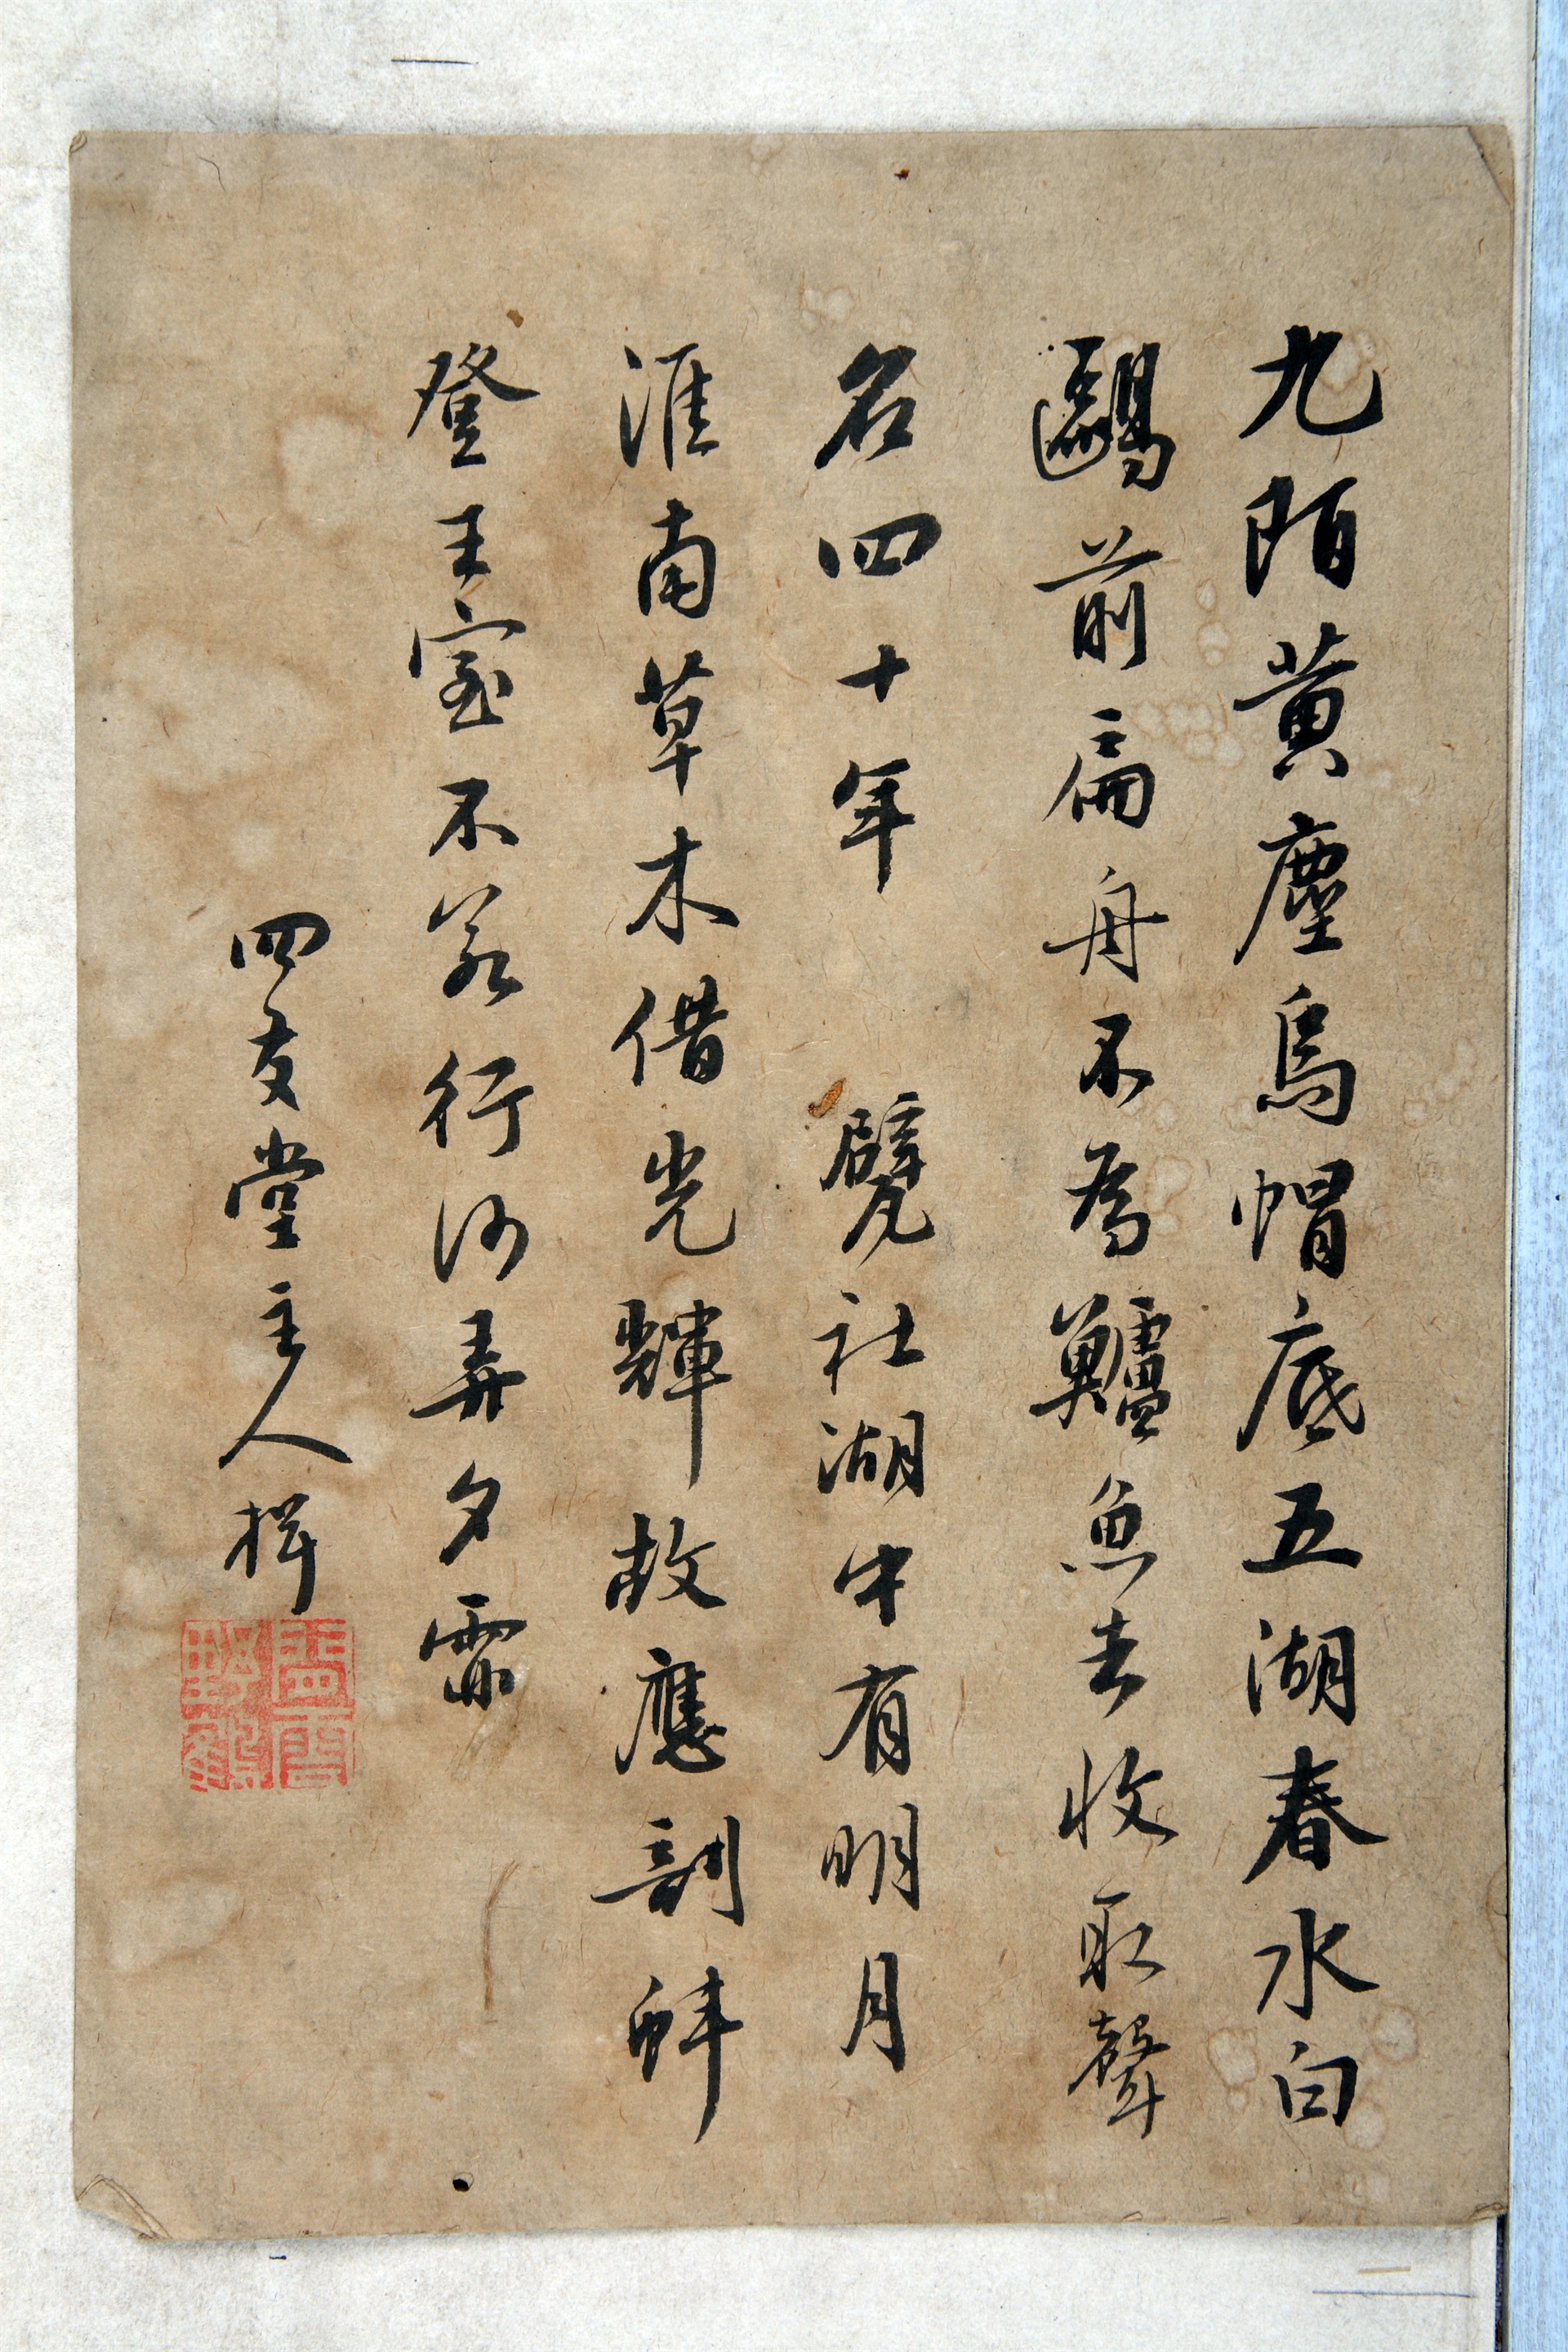 九陌黄塵烏帽底五湖春水白
鷗前扁舟不為鱸魚去收取聲
名四十年 甓社湖中有明月
淮南草木借光輝故應剖蚌
登王室不若行沙弄夕霏
四友堂主人